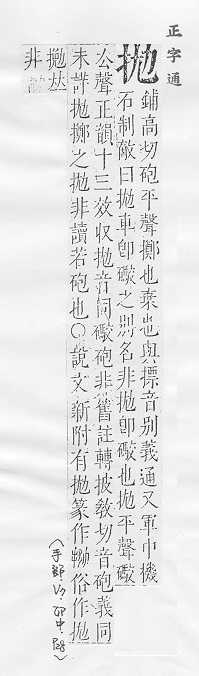 正字通
抛
鋪高切砲平聲擲也棄也與摽音別義通又軍中機
石制敵曰抛車卽礮之別名非抛卽礮也抛平聲礮
去聲正韻十三效収抛音同礮砲非舊註轉披敎切音砲義同
未詳抛擲之抛非讀若砲也○說文新附有抛篆作俗作抛
非
(手部